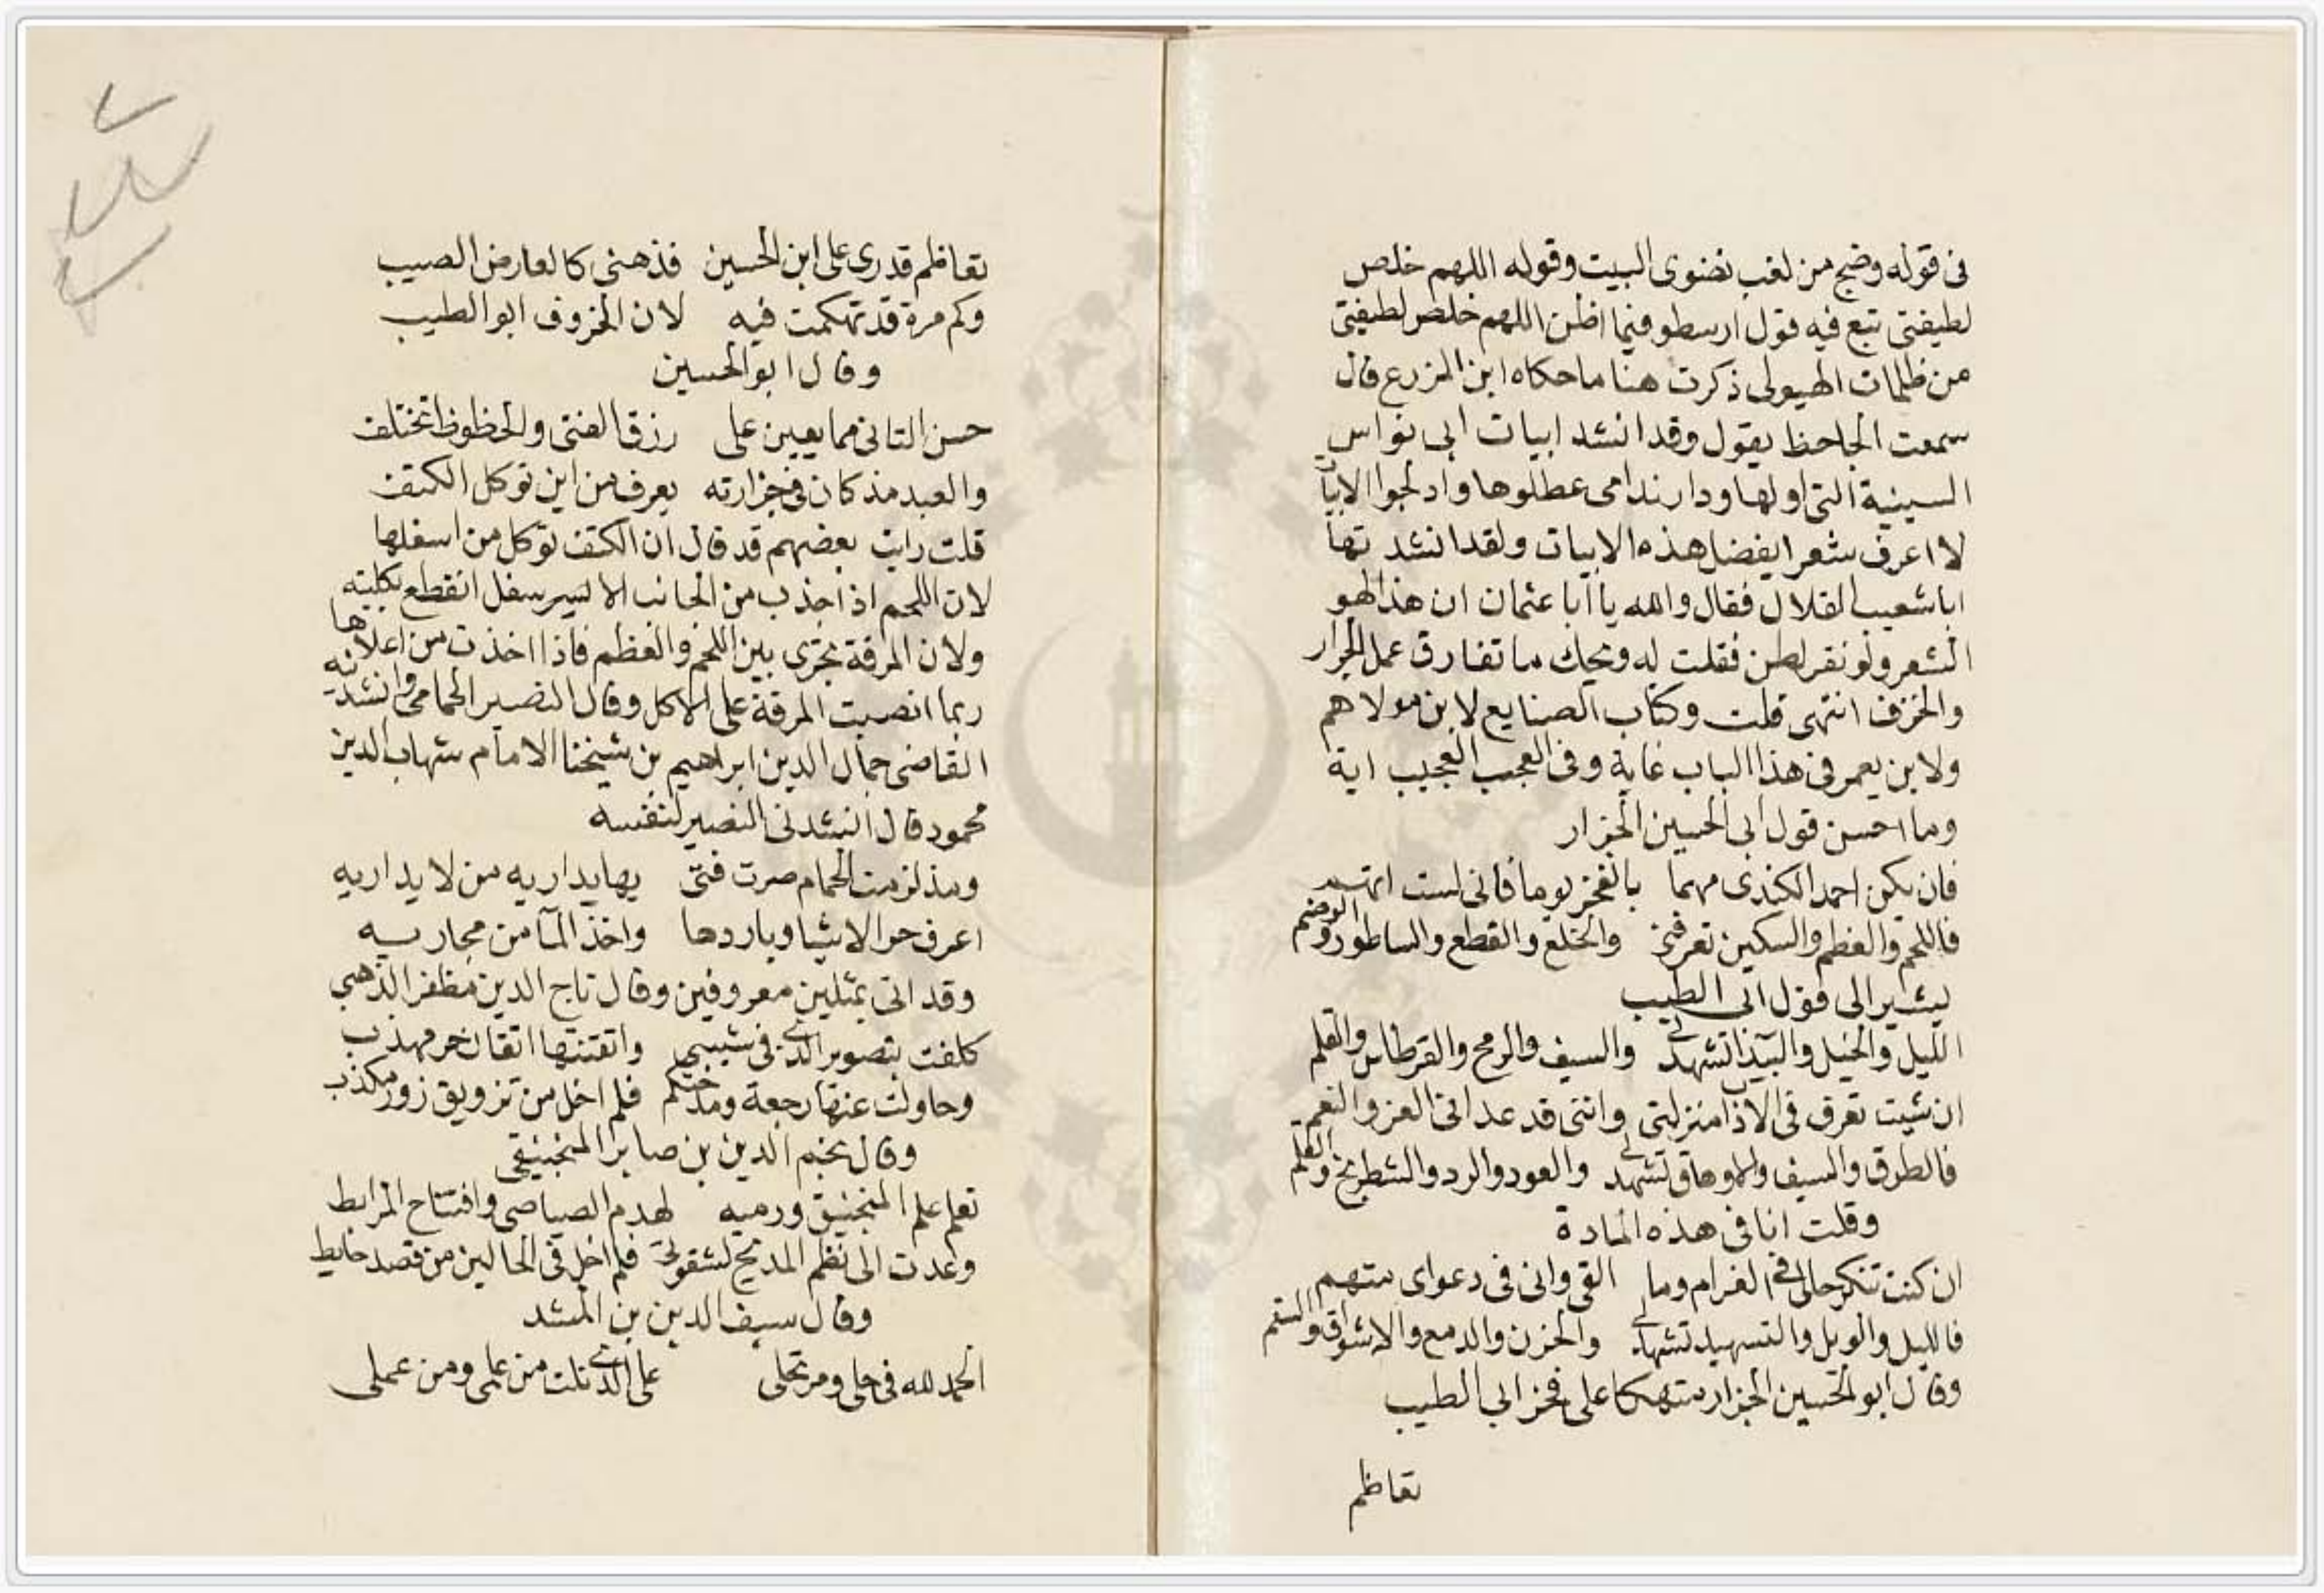 فى قوله وضج من لغب نضوى البيت وقوله اللهم خلص
لطيفتى تبع فيه قول ارسطو فيما اظن اللهم خلص لطيفتى
من ظلمات الهيولى ذكرت هنا ما حكاه ابن المزرع قال
سمعت الجاحظ يقول وقد انشد ابيات ابى نواس
السينية التى اولها ودار ندامى عطلوها وادلجوا الابيا
لا اعرف شعرا يفضل هذه الابيات ولقد انشدتها
ابا شعيب القلال فقال والله يا ابا عثمان ان هذا لهو
الشعر ولو نقر لطن فقلت له ويحك ما تفارق عمل الجرار
والخزف انتهى قلت وكتاب الصنايع لابن مولاهم
ولابن يعمر فى هذا الباب غاية وفى العجب العجيب اية
وما احسن قول ابى الحسين الجزار
فان يكن احمد الكندى متهما بالفخر يوما فانى لست اتهم
فاللحم والعظم والسكين تعرفنى والخلع والقطع والساطور والوضم
يشير الى قول ابى الطيب
الليل والخيل والبيدا تشهد لى والسيف والرمح والقرطاس والقلم
ان شيت تعرف فى الاداب منزلتى واننى قد عدانى العز والنعم
فالطرق والسيف والاوهاق تشهد لى والعود والنرد والشطرنج والقلم
وقلت انا فى هذه المادة
ان كنت تنكر حالى فى الغرام وما القى وانى فى دعواى متهم
فالليل والويل والتسهيد تشهد لى والحزن والدمع والاشواق والسقم
وقال ابو الحسين الجزار متهكما على فخر ابى الطيب
تعاظم
تعاظم قدرى على ابن الحسين فذهنى كالعارض الصيب
وكم مرة قد تهكمت فيه لان الخروف ابو الطيب
وقال ابو الحسين
حسن التانى مما يعين على رزق الفتى والحظوظ تختلف
والعبد مذ كان فى جزارته يعرف من اين توكل الكتف
قلت رايت بعضهم قد قال ان الكتف توكل من اسفلها
لان اللحم اذا جذب من الجانب الا سفل انقطع بكليته
ولان المرقة تجرى بين اللحم والعظم فاذا اخذت من اعلاها
ربما انصبت المرقة على الاكل وقال النصير الحمامى وانشدنيه
القاضى جمال الدين ابراهيم بن شيخنا الامام شهاب الدين
محمود قال انشدنى النصير لنفسه
ومذ لزمت الحمام صرت فتى بها يدارى من لا يداريه
اعرف حر الاشيا وباردها واخذ المآ من مجاريه
وقد اتى بمثلين معروفين وقال تاج الدين مظفر الذهبى
كلفت بتصوير الدمى فى شبيبتى واتقنتها اتقان حر مهذب
وحاولت عنها رجعة فلم اخل من تزويق زور مكذب
وقال نجم الدين بن صابر المنجنيقى
تعلم علم المنجنيق ورميه لهدم الصياصى وافتتاح المرابط
وعدت الى نظم المديح لشقوتى فلم اخل فى الحالين من قصد حايط
وقال سيف الدين بن المشد
الحمد لله فى حلى ومرتحلى على الذى نلت من علمى ومن عملى